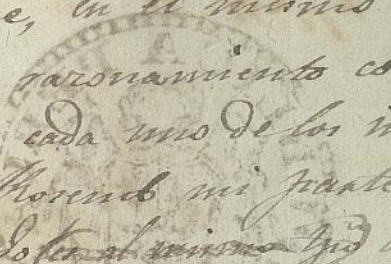 e, en el mismo
razonamiento co
cada uno de los
Moreno mi parte
al mismo